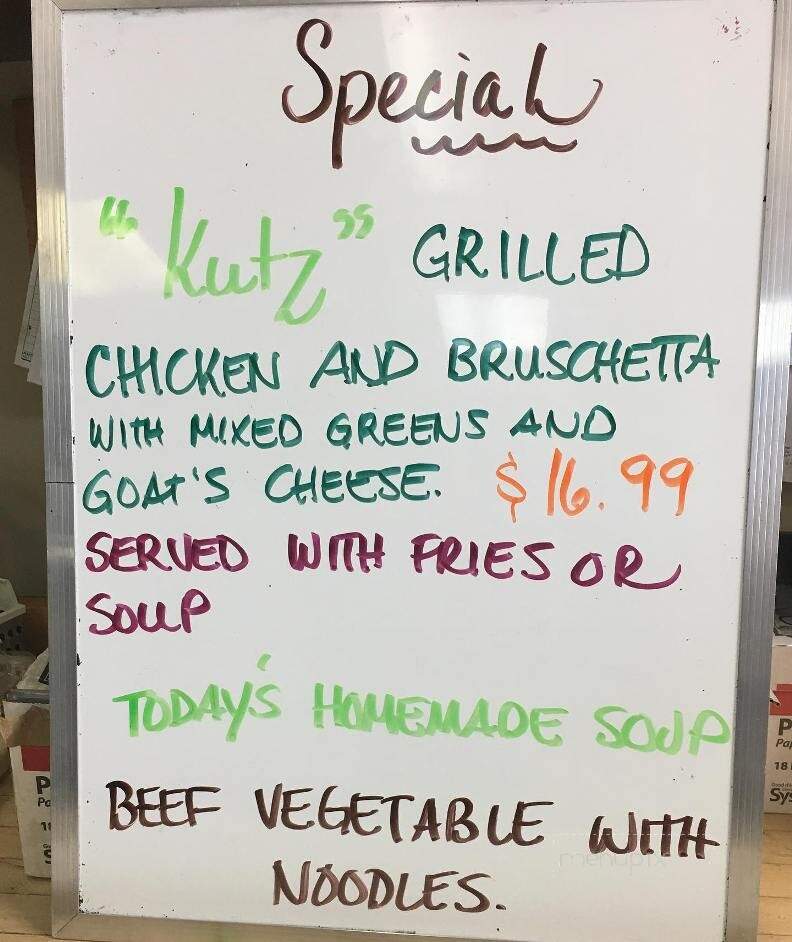 Special
"Kutz" GRILLED
CHICKEN AND BRUSCHETTA
WITH MIXED GREENS AND
GOAT'S CHEESE. $16.99
SERVED WITH FRIES OR
SOUP
TODAY'S HOMEMADE SOUP
BEEF VEGETABLE WITH
NOODLES.
menupix
P
Pa
P
Pap
18
Sys